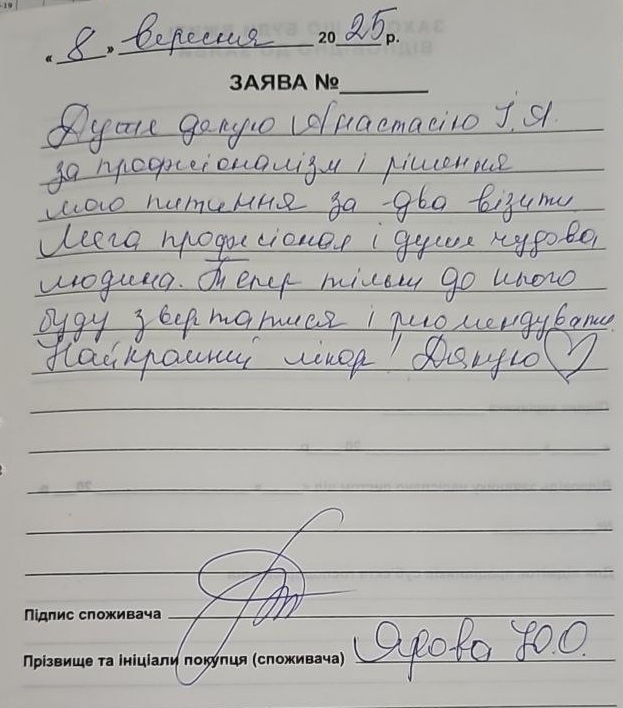 « 8 » вересня 2025 р.
ЗАЯВА №
Дуже дякую Анастасію І.Я.
за професіоналізм і рішення
мого питання за два візити
Мега професіонал і дуже чудова
людина. Тепер тільки до нього
буду звертатися і рекомендувати
Найкращий лікар! Дякую♡
Підпис споживача
Прізвище та ініціали покупця (споживача) Ярова Ю.О.